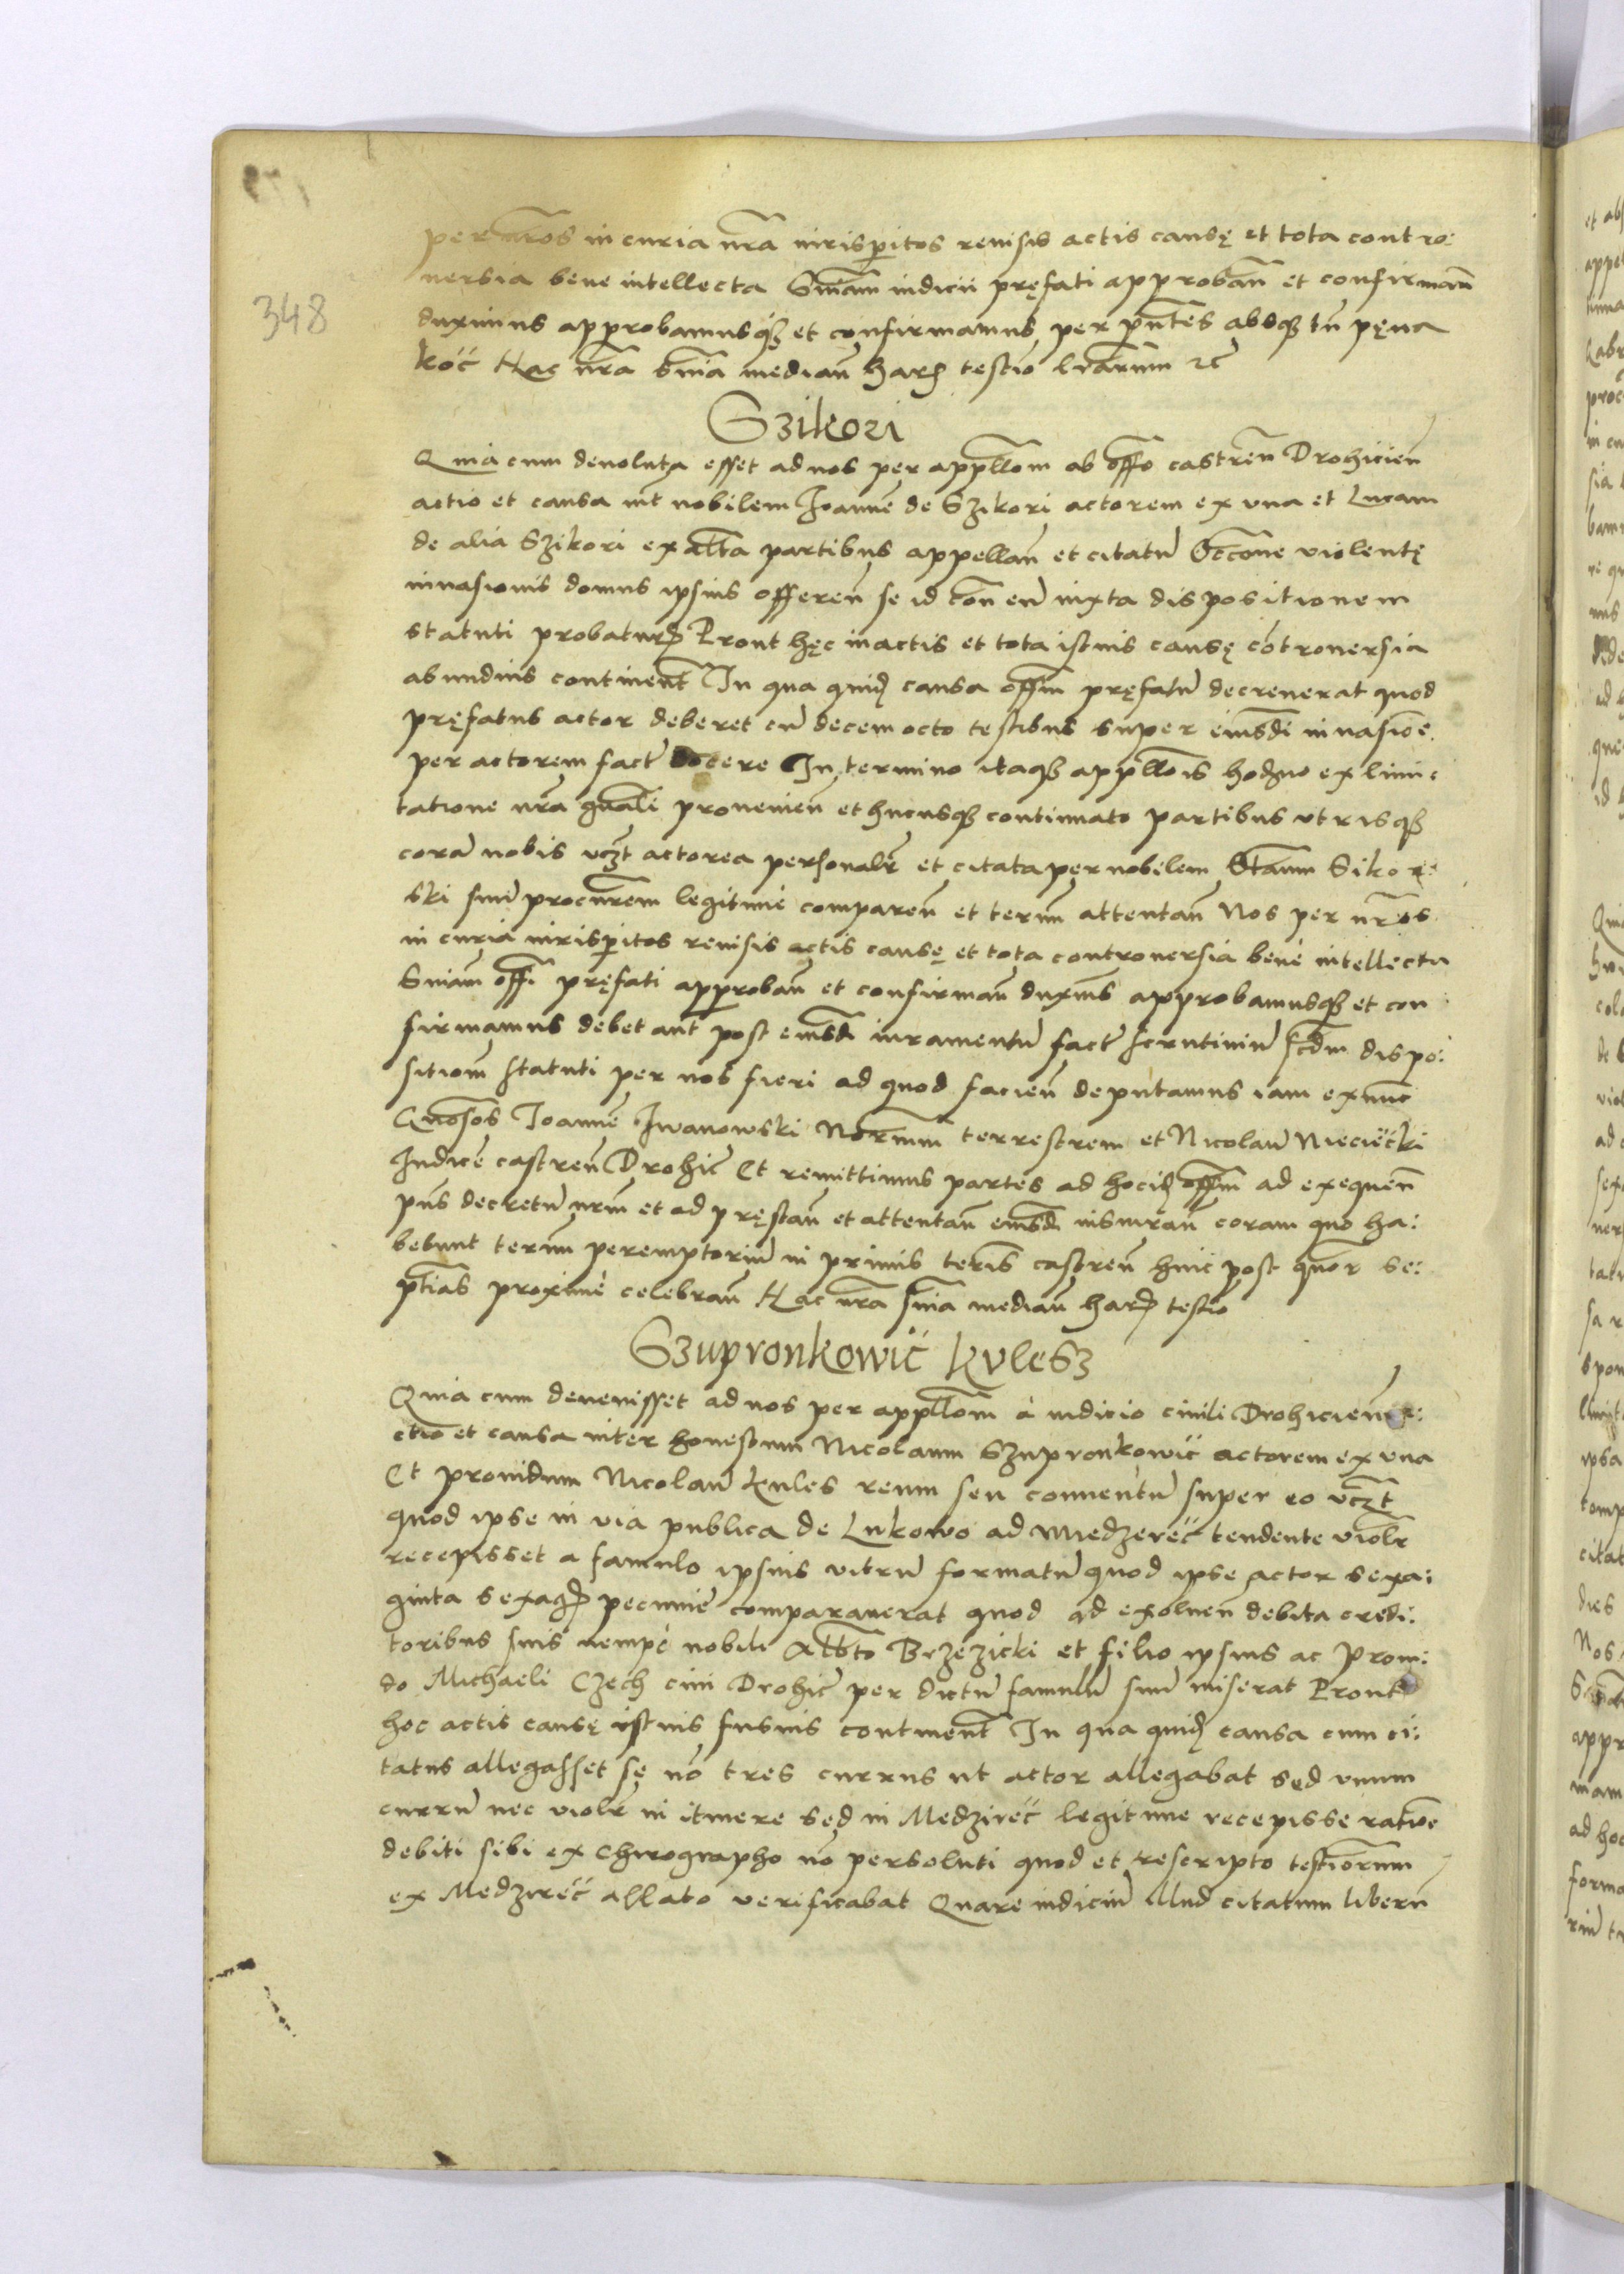 per nros in curia nra iurisperitos reuisis actis causę et tota contro:
uersia bene intellecta Sniam iudicii pręfati approban et confirman
duximus approbamusq et confirmamus per pntes absq tn pęna
koć Hac nra snia median harᷓ testio lrarum etc
348
Szikori
Quia cum deuoluta esset ad nos per appllom ab offo castren Drohicien
actio et causa int nobilem Joanne de Szikori actorem ex vna et Lucam
de alia Szikori ex altra partibus appellan et citatu Occone violentę
inuasionis domus ipsius offeren se id con eu iuxta dispositionem
statuti probaturᷓ Prout hęc in actis et tota istius causę cotrouersia
abundius continent In qua quid causa offm pręfatu decreuerat quod
pręfatus actor deberet cu decem octo testibus super eiusdi inuasioe
per actorem fact docere In termino itaq appllois hodno ex limi:
tatione nra gnali prouenien et hucusq continuato partibus vtrisq
cora nobis vczt actorea personalr et citata per nobilem Stanm Sikor:
ski suu procurem legitime comparen et termm attentan Nos per nros
in curia iurisperitos reuisis actis causę et tota controuersia bene intellecta
Sniam offi pręfati approban et confirman duxims approbamusq et con
firmamus debet aut post eiusdi iuramentu fact scrutiniu scdm dispo:
sitiom statuti per nos fieri ad quod facien deputamus iam exnunc
Gnosos Joanne Iwanowski Norium terrestrem et Nicolau Niecieċki
Judice castren Drohic Et remittimus partes ad hocid offm ad exequen
pns decretu nrm et ad pręstan et attentan eiusdi iusiuran coram quo ha:
bebunt termm peremptoriu in primis termis castren huic post quor se:
ptias proxime celebran Hac nra snia median harᷓ testio
Szupronkowić Kulesz
Quia cum deuenisset ad nos per appllom à iudicio ciuili Drohicien a:
ctio et causa inter honestum Nicolaum Szupronkowić actorem ex vna
Et prouidum Nicolau Kules reum seu conuentu super eo vczt
quod ipse in via publica de Lukowo ad Miedzereć tendente violr
recepisset a famulo ipsius vitru formatu quod ipse actor sexa:
ginta sexagᷓ pecunie comparauerat quod ad exoluen debita credi:
toribus suis nempe nobili Albto Brzezicki et filio ipsius ac Proui:
do Michaeli Czech ciui Drohic per dictu famulu suu miserat Prout
hoc actis causę istius fusius continent In qua quid causa cum ci:
tatus allegasset sę no tres currus ut actor allegabat sed vnum
curru nec violr in itinere sed in Medzireć legitime recepisse ratioe
debiti sibi ex chirographo no persoluti quod et rescripto testiorum
ex Medzireć allato verificabat Quare iudiciu illud citatum liberu